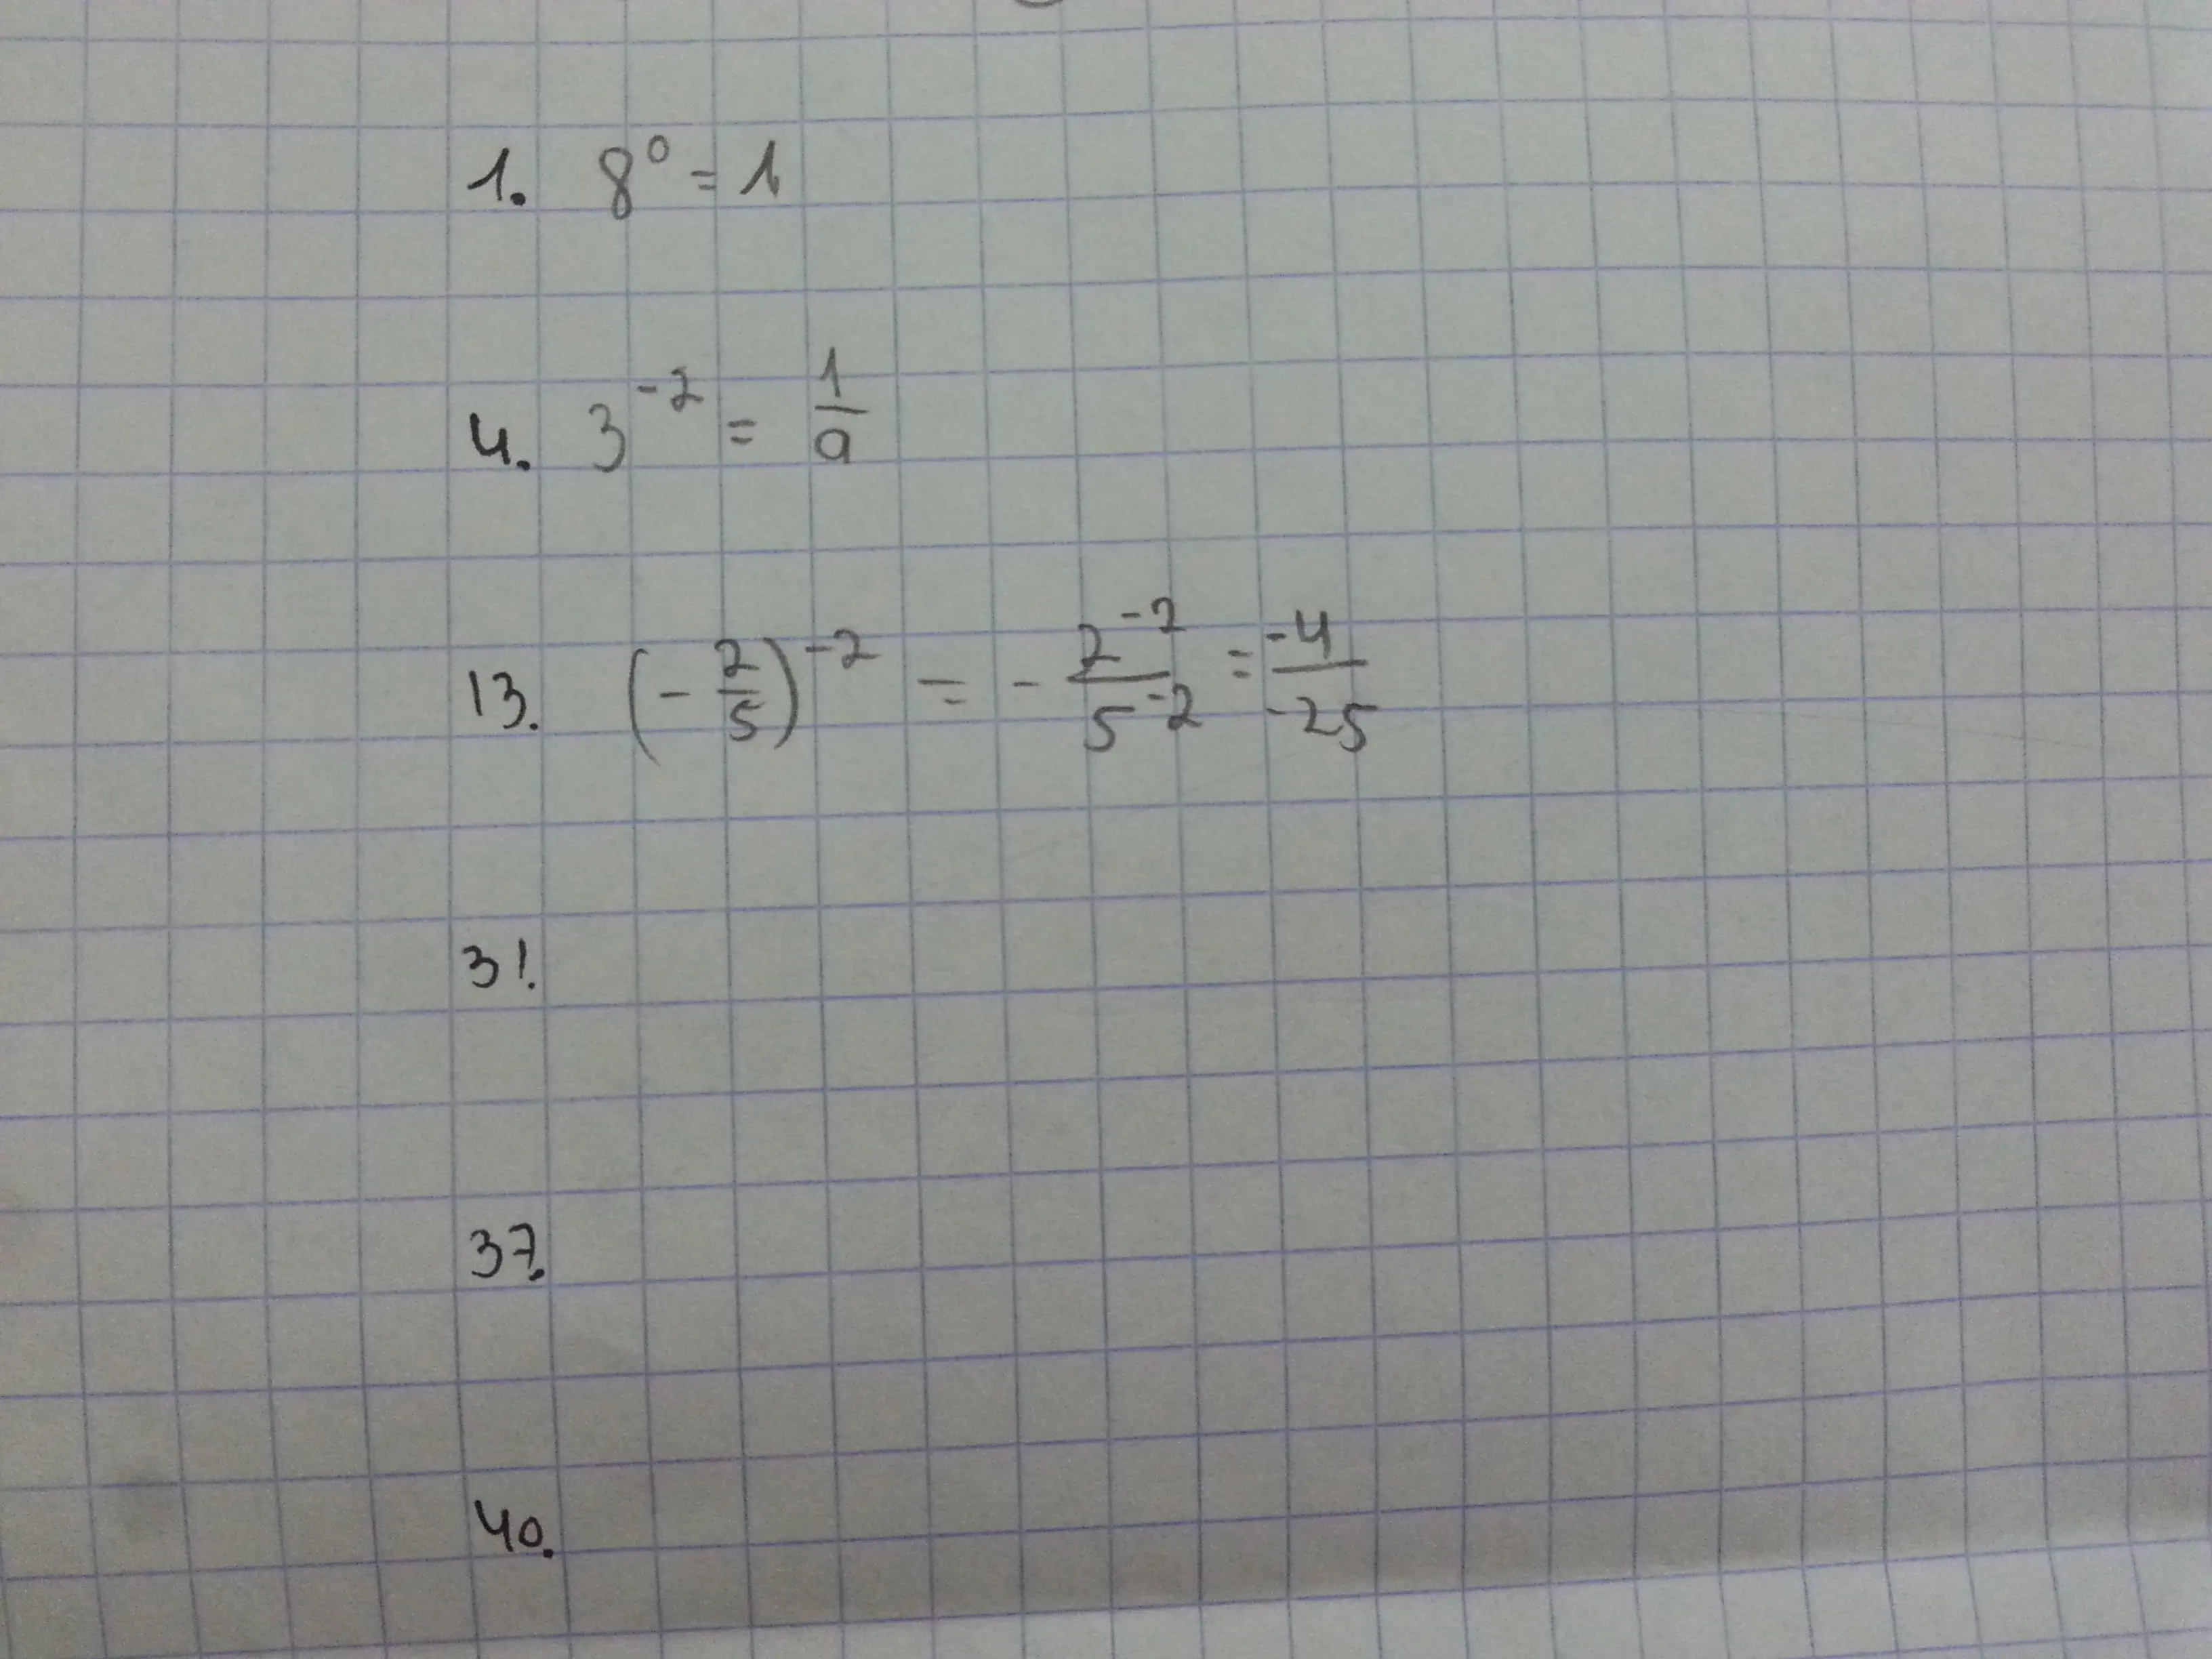 1. 8⁰ = 1
4. 3⁻² = 1/9
13. (-2/5)⁻² = - 2⁻²/5⁻² = -4/-25
31.
37.
40.